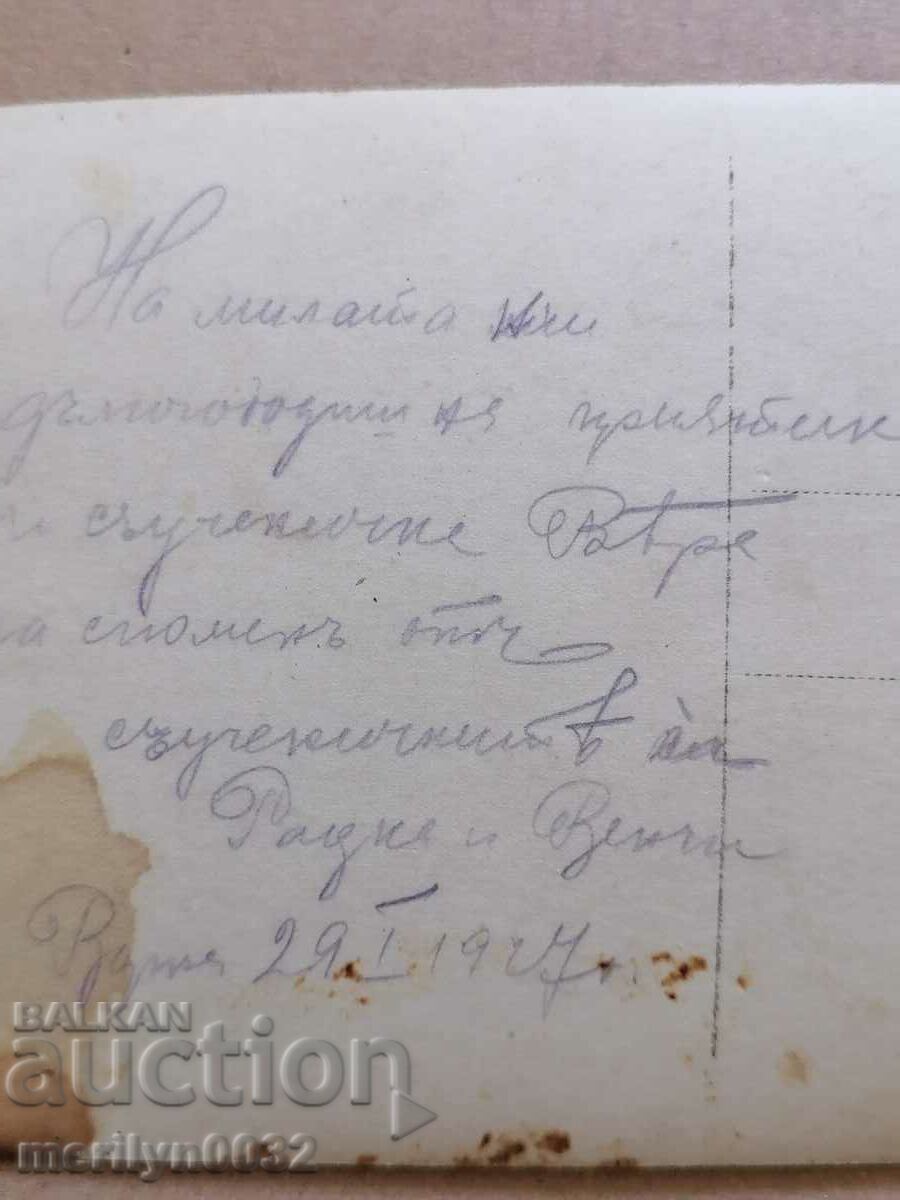 На милата ни
дългогодишня приятелк
и съученичке Вѣра
за споменъ отъ
съученичкитѣ ѝ
Радка и Венчи
Варна 29 I 1927 г.
BALKAN
auction
merilyn0032